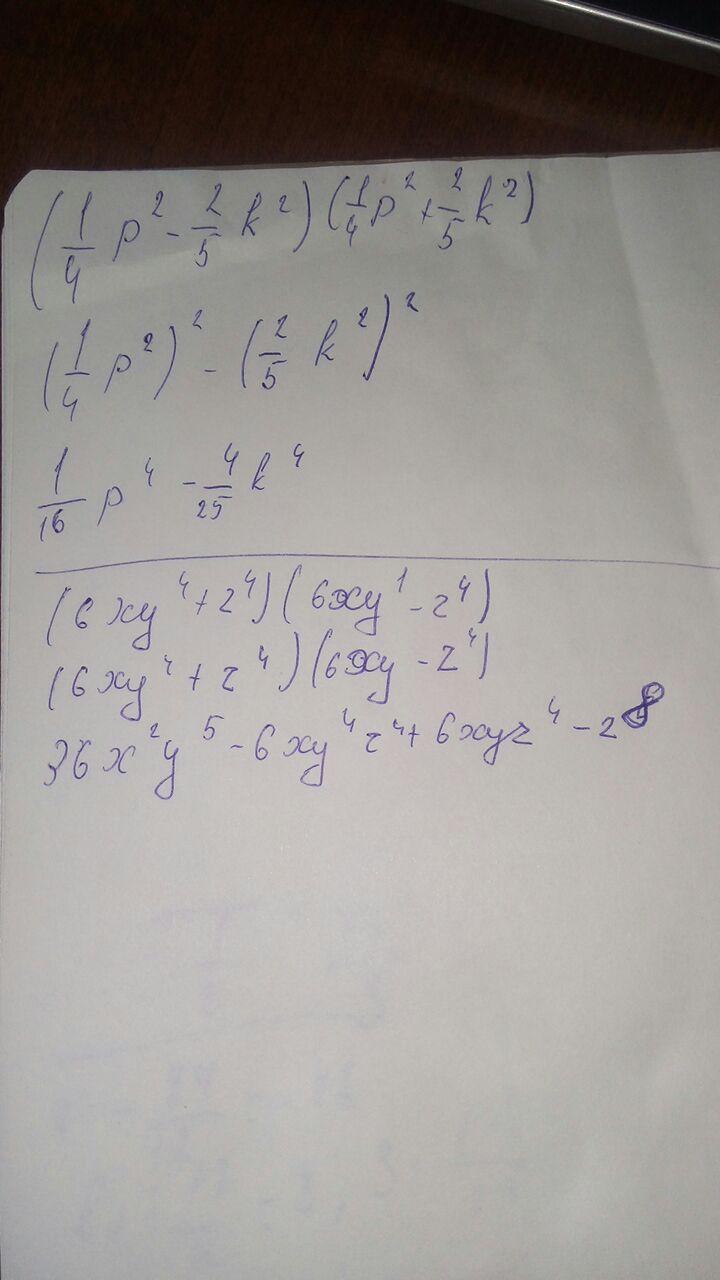 (1/4 p² - 2/5 k²)(1/4 p² + 2/5 k²)
(1/4 p²)² - (2/5 k²)²
1/16 p⁴ - 4/25 k⁴
(6xy⁴ + z⁴)(6xy¹ - z⁴)
(6xy⁴ + z⁴)(6xy - z⁴)
36x²y⁵ - 6xy⁴z⁴ + 6xyz⁴ - z⁸